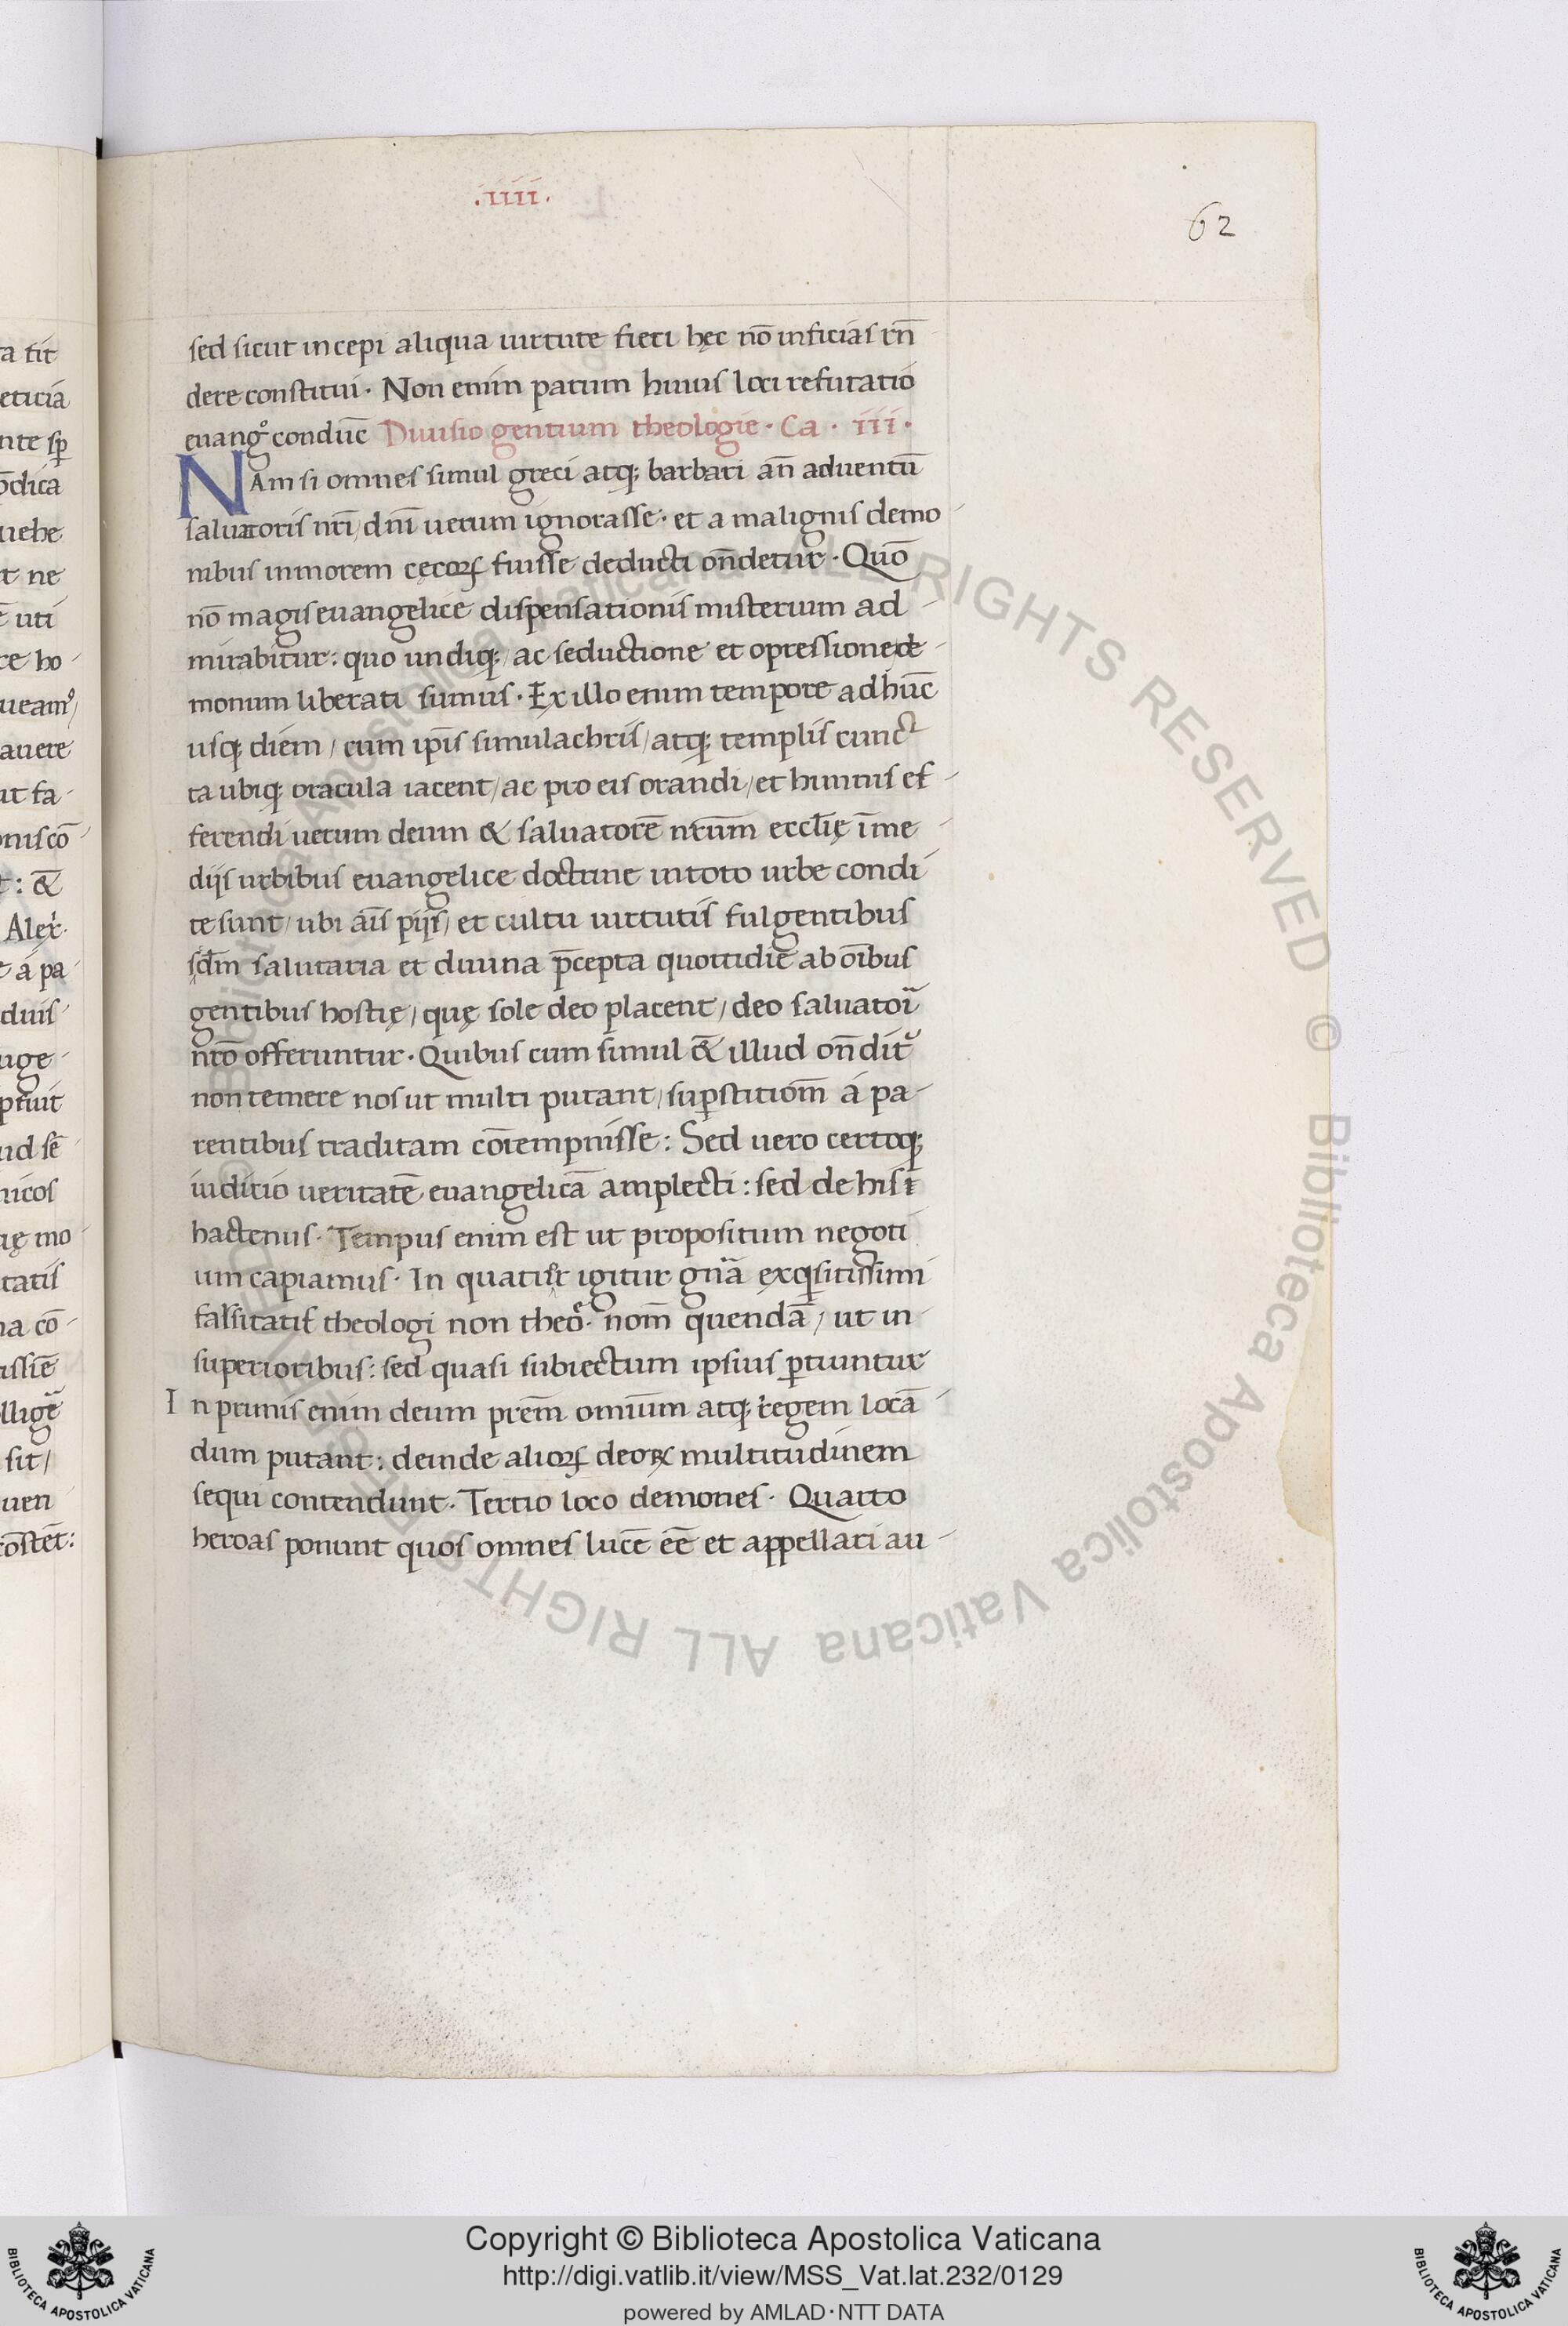 .iiii.
62
sed sicut incepi aliqua uirtute fieri hęc nō inficias rñ
dere constitui. Non enim parum huius loci refutatio
euangᵒ conduc̄ Diuisio gentium theologie. Ca. iii.
NAm si omnes simul greci atq; barbari an̄ aduentū
saluatoris nr̄i/dn̄i uerum ignorasse. et a malignis demo
nibus inmorem cęcoꝝ fuisse deducti on̄detur. Quō
nō magis euangelice dispensationis misterium ad
mirabitur: quo undiq;/ac seductione et opressione de
monum liberati sumus. Ex illo enim tempore adhūc
usq; diem/cum ip̄is simulachris/atq; templis cunct
ta ubiq; oracula iacent/ac pro eis orandi/et himnis ef
ferendi uerum deum & saluatorē nr̄um eccl̄ię ī me
dijs urbibus euangelice doctrine in toto urbe condi
te sunt/ubi āis pijs/et cultu uirtutis fulgentibus
sc̄dm salutaria et diuina p̄cepta quottidie ab oībus
gentibus hostię/quę sole deo placent/deo saluatori
nr̄o offeruntur. Quibus cum simul & illud on̄dit᷑
non temere nos ut multi putant/suꝑstitiom̄ á pa-
rentibus traditam cōtempnisse: Sed uero certoq;
iuditio ueritatē euangelicā amplecti: sed de his
hactenus. Tempus enim est ut propositum negoti
um capiamus. In quatuor igitur gn̄a exqsitissimi
falsitatis theologi non theō. nom̄ quendā/ut in
superioribus: sed quasi subiectum ipsius ꝑtiuntur
In primis enim deum pr̄em omnium atq; regem locā
dum putant: deinde alioꝝ deoꝝ multitudinem
sequi contendunt. Tertio loco demones. Quarto
heroas ponunt quos omnes lucē eē et appellari au-
Copyright © Biblioteca Apostolica Vaticana
http://digi.vatlib.it/view/MSS_Vat.lat.232/0129
powered by AMLAD·NTT DATA